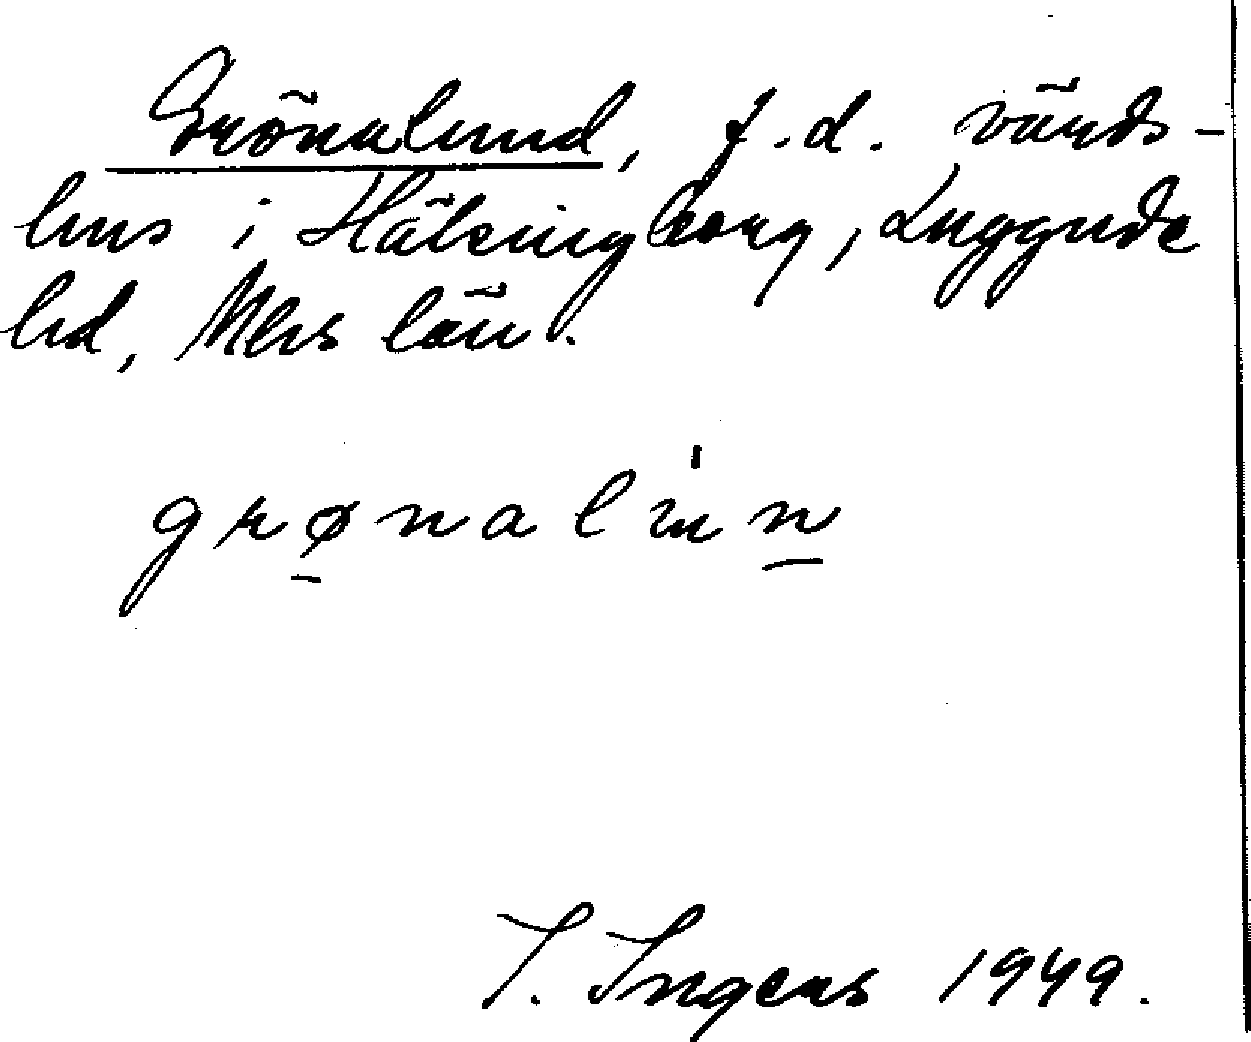 Grönalund, f.d. värds-
hus i Hälsingborg, Luggude
hd, Mhs län.
grønalun
I. Ingers 1949.